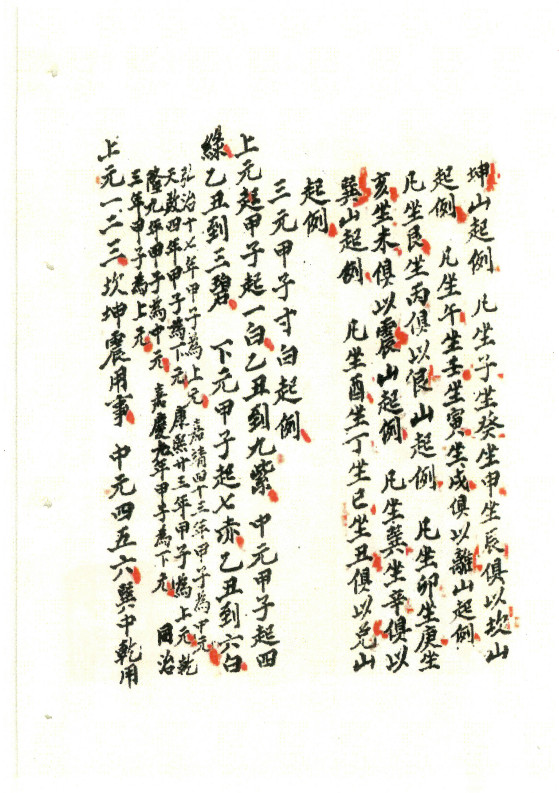 坤山起例　凡坐子坐癸坐申坐辰俱以坎山
起例　凡坐午坐壬坐寅坐戌俱以離山起例
凡坐艮坐丙俱以艮山起例　凡坐卯坐庚坐
亥坐未俱以震山起例　凡坐巽坐辛俱以
巽山起例　凡坐酉坐丁坐巳坐丑俱以兌山
起例
三元甲子寸白起例
上元起甲子起一白乙丑到九紫　中元甲子起四
綠乙丑到三碧　下元甲子起七赤乙丑到六白
弘治十七年甲子為上元　嘉靖四十三年甲子為中元
天啟四年甲子為下元　康熙廿三年甲子為上元乾
隆九年甲子為中元　嘉慶九年甲子為下元　同治
三年甲子為上元
上元一二三坎坤震用事　中元四五六巽中乾用